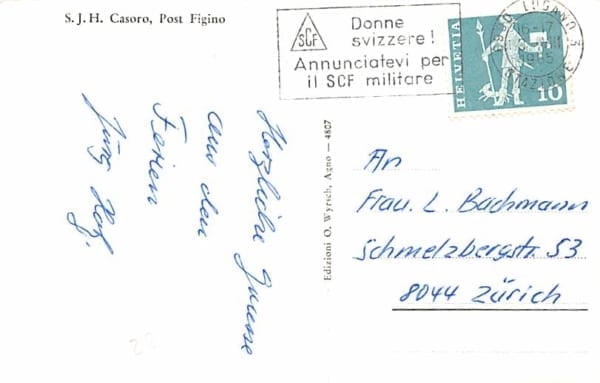 S. J. H. Casoro, Post Figino
SCF
Donne
svizzere!
Annunciatevi per
il SCF militare
LUGANO 3
1985
STAZIONE
HELVETIA
10
Herzliche Grüsse
aus den
Ferien
Jürg
Edizioni O. Wyrsch, Agno — 4807
An
Frau. L. Bachmann
Schmelzbergstr. 53
8044 Zürich